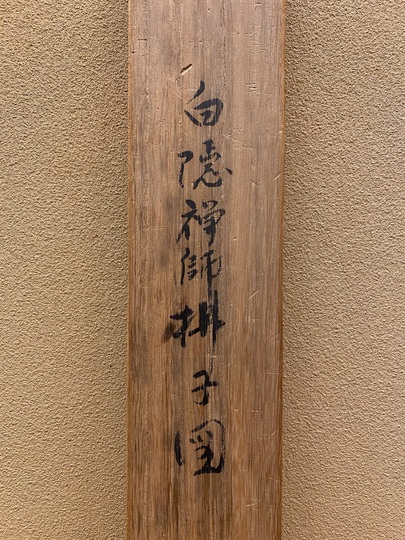 白隠禅師拂子図